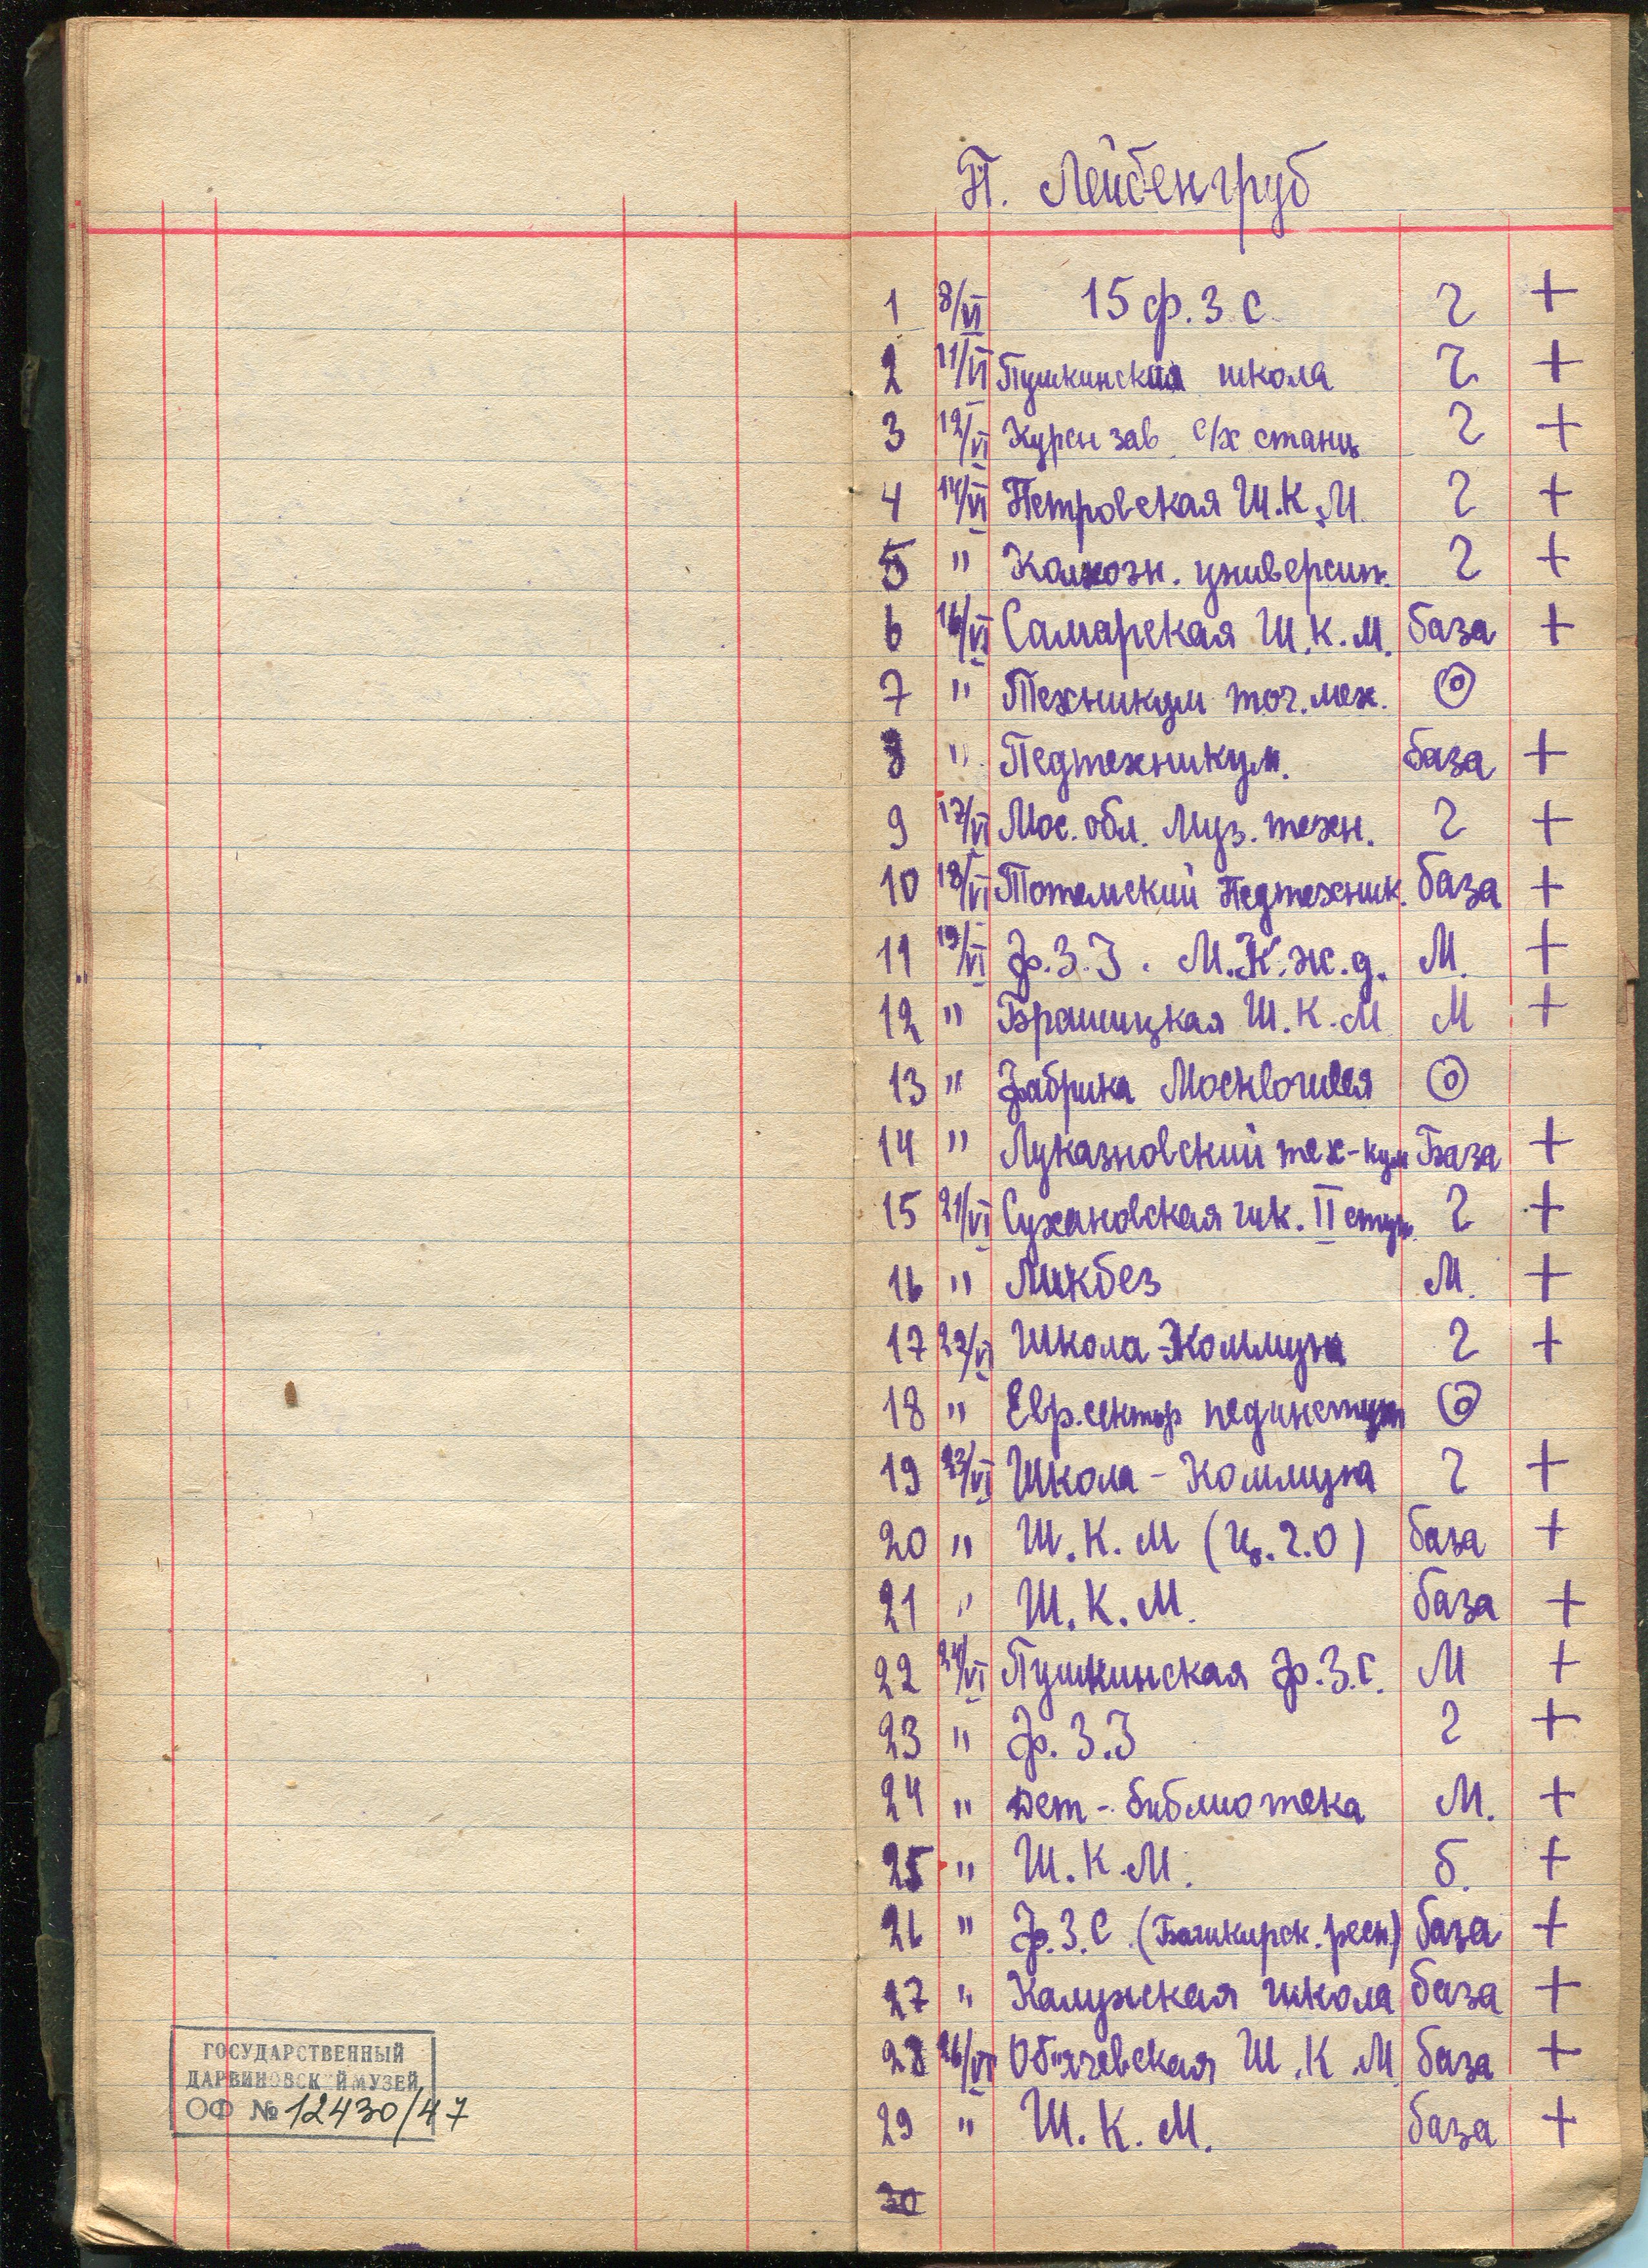 П. Лейбенгруб
1 8/VI 15 ф. З С. 2 +
2 11/VI Пушкинская школа 2 +
3 12/VI Курсы зав. с/х станц 2 +
4 14/VI Петровская Ш.К.М. 2 +
5 " Колхозн. университ. 2 +
6 16/VI Самарская Ш.К.М. база +
7 " Техникум точ. мех. ⊙
8 " Педтехникум. база +
9 17/VI Мос. обл. Муз. техн. 2 +
10 18/VI Тотемский Педтехник. база +
11 19/VI Ф.З.У. М.К.ж.д. М. +
12 " Бронницкая Ш.К.М М +
13 " Фабрика Москвошвея ⊙
14 " Лукаяновский тех-кум База +
15 21/VI Сухановская шк. II ступ. 2 +
16 " Ликбез М. +
17 22/VI Школа-Коммуна 2 +
18 " Евр. сектор пединститут ⊙
19 23/VI Школа - Коммуна 2 +
20 " Ш.К.М (Ц.Ч.О) база +
21 " Ш.К.М. база +
22 24/VI Пушкинская Ф.З.С. М +
23 " Ф.З.У 2 +
24 " Дет-библиотека М. +
25 " Ш.К.М. б. +
26 " Ф.З.С. (Башкирск. респ.) база +
27 " Калужская школа база +
28 26/VI Объячевская Ш.К.М. база +
29 " Ш.К.М. база +
30
ГОСУДАРСТВЕННЫЙ
ДАРВИНОВСК ЙМУЗЕЙ
ОФ № 12430/47